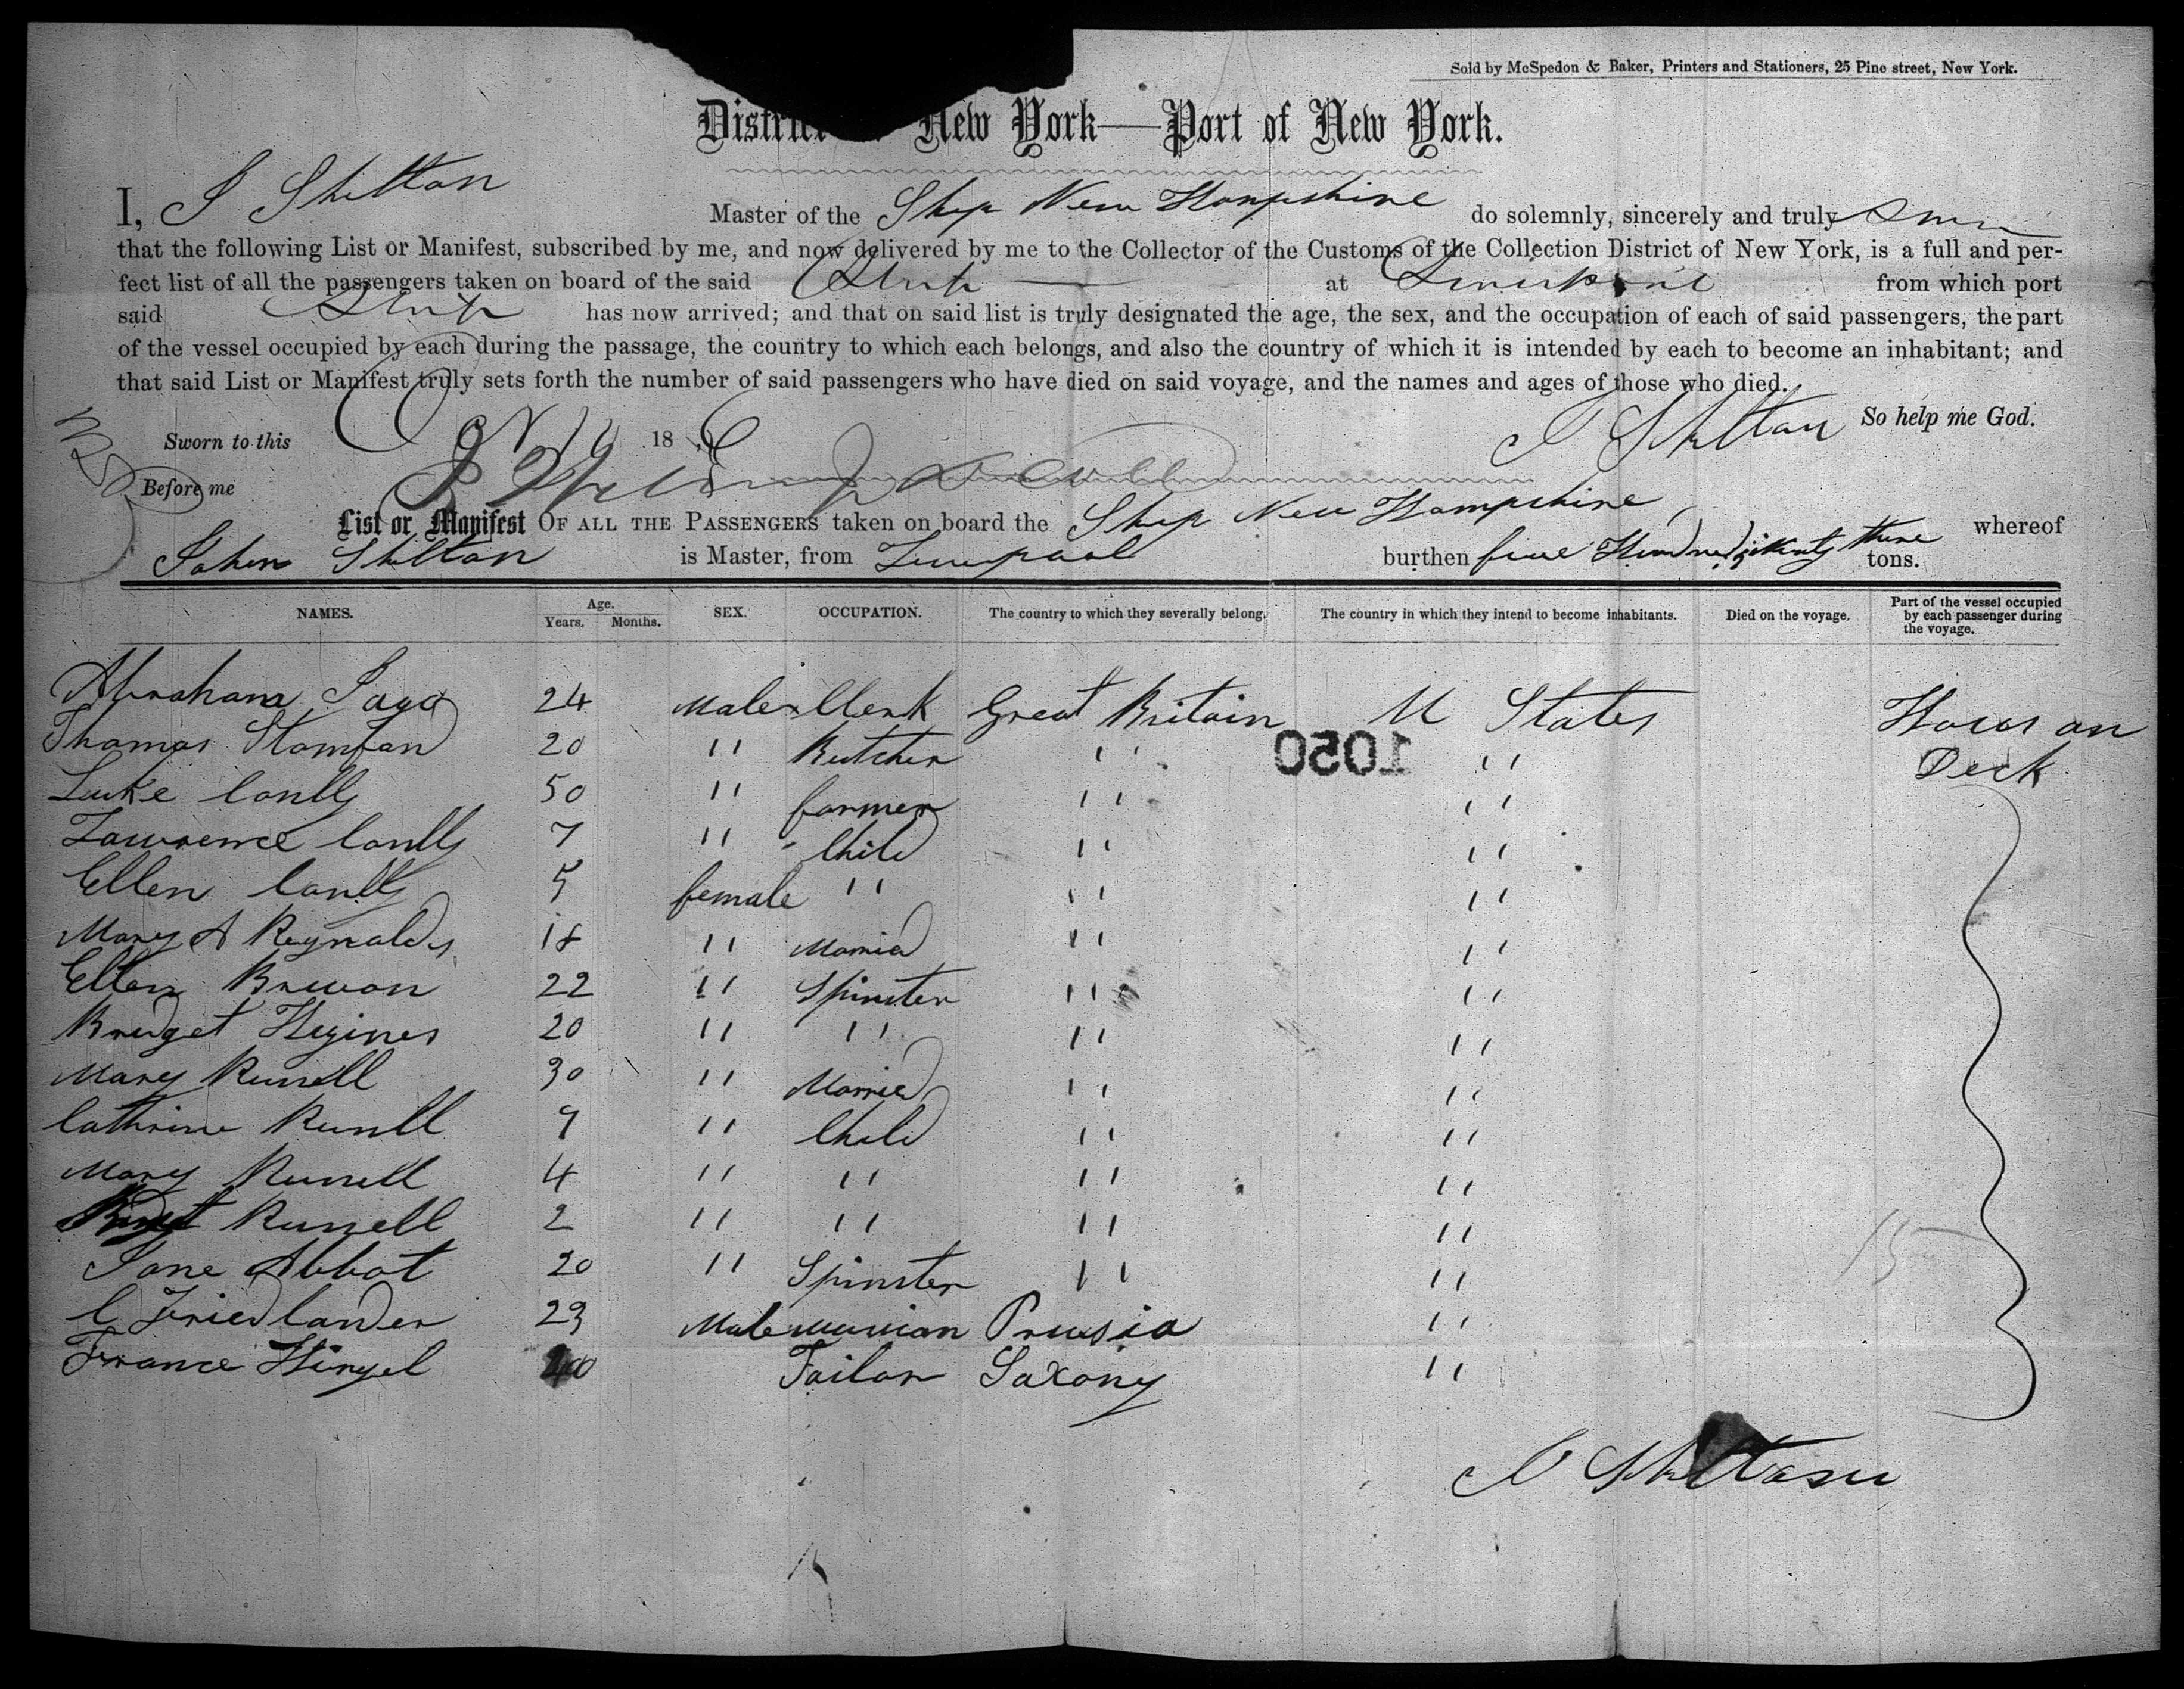 Sold by McSpedon & Baker, Printers and Stationers, 25 Pine street, New York.
District New York—Port of New York.
I, J Shelton Master of the Ship New Hampshire do solemnly, sincerely and truly
that the following List or Manifest, subscribed by me, and now delivered by me to the Collector of the Customs of the Collection District of New York, is a full and per-
fect list of all the passengers taken on board of the said Ship at Liverpool from which port
said Ship has now arrived; and that on said list is truly designated the age, the sex, and the occupation of each of said passengers, the part
of the vessel occupied by each during the passage, the country to which each belongs, and also the country of which it is intended by each to become an inhabitant; and
that said List or Manifest truly sets forth the number of said passengers who have died on said voyage, and the names and ages of those who died.
J Shelton So help me God.
Sworn to this 18
Before me
List or Manifest OF ALL THE PASSENGERS taken on board the Ship New Hampshire whereof
John Shelton is Master, from Liverpool burthen five Hundred tons.
NAMES. Age. Years. Months. SEX. OCCUPATION. The country to which they severally belong. The country in which they intend to become inhabitants. Died on the voyage. Part of the vessel occupied by each passenger during the voyage.
Abraham 24 Male Clerk Great Britain U States House on
Thomas 20 " Butcher " " Deck
1050
Luke 50 " farmer " "
Lawrence 7 " Child " "
Ellen 5 female " " "
Mary A Reynolds 18 " Married " "
Ellen 22 " Spinster " "
Bridget Higines 20 " " " "
Mary Russell 30 " Married " "
Cathrine Russell 9 " Child " "
Mary Russell 4 " " " "
Russell 2 " " " "
Jane Abbot 20 " Spinster " "
15
C Friedlander 23 Male musician Prussia "
France Hingel Tailor Saxony "
J Shelton